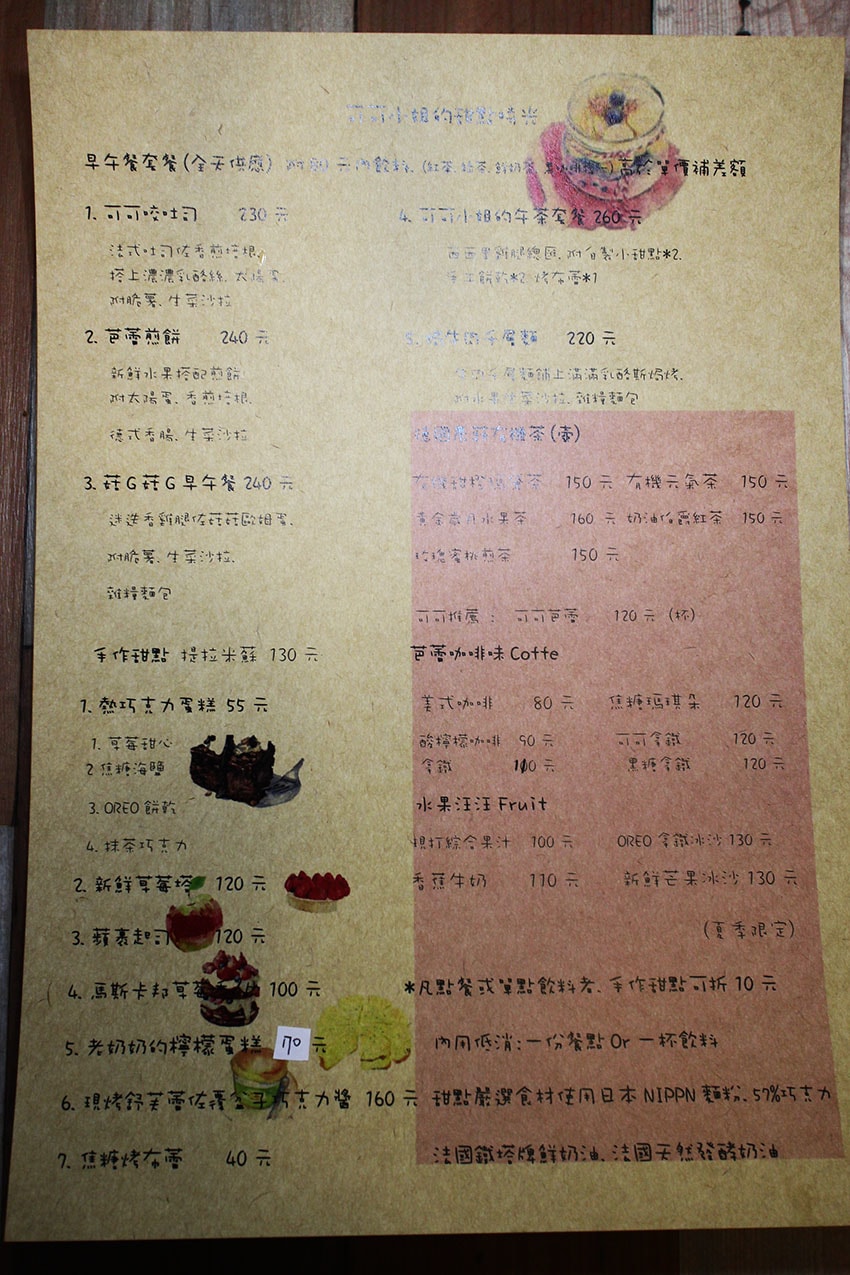 可可小姐的甜點時光
早午餐套餐(全天供應) 附 元內飲料、(紅茶、綠茶、鮮奶茶、 )高於單價補差額
1. 可可咬吐司 230 元
法式吐司佐香煎培根、
搭上濃濃乳酪絲、太陽蛋、
附脆薯、生菜沙拉
2. 芭蕾煎餅 240 元
新鮮水果搭配煎餅
附太陽蛋、香煎培根、
德式香腸、生菜沙拉
3. 菇G菇G早午餐 240 元
迷迭香雞腿佐菇菇歐姆蛋、
附脆薯、生菜沙拉、
雜糧麵包
4. 可可小姐的午茶套餐 260 元
西西里雞腿總匯、附自製小甜點*2、
手工餅乾*2 烤布蕾*1
5. 千層麵 220 元
千層麵鋪上滿滿乳酪絲焗烤、
附水果 生菜沙拉、雜糧麵包
手作甜點 提拉米蘇 130 元
1. 熱巧克力蛋糕 55 元
1. 草莓甜心
2 焦糖海鹽
3. OREO 餅乾
4. 抹茶巧克力
2. 新鮮草莓塔 120 元
3. 蘋裹起司 120 元
4. 馬斯卡邦草莓 100 元
5. 老奶奶的檸檬蛋糕 70 元
6. 現烤舒芙蕾佐覆盆子巧克力醬 160 元
7. 焦糖烤布蕾 40 元
有機茶(壺)
有機甜橙 茶 150 元 有機元氣茶 150 元
黃金歲月水果茶 160 元 奶油伯爵紅茶 150 元
玫瑰蜜桃煎茶 150 元
可可推薦: 可可芭蕾 120 元 (杯)
芭蕾咖啡味 Coffe
美式咖啡 80 元 焦糖瑪琪朵 120 元
酸檸檬咖啡 90 元 可可拿鐵 120 元
拿鐵 100 元 黑糖拿鐵 120 元
水果汪汪 Fruit
現打綜合果汁 100 元 OREO 拿鐵冰沙 130 元
香蕉牛奶 110 元 新鮮芒果冰沙 130 元
(夏季限定)
*凡點餐或單點飲料者、手作甜點可折 10 元
內用低消:一份餐點 Or 一杯飲料
甜點嚴選食材使用日本 NIPPN 麵粉、57%巧克力
法國鐵塔牌鮮奶油、法國天然發酵奶油